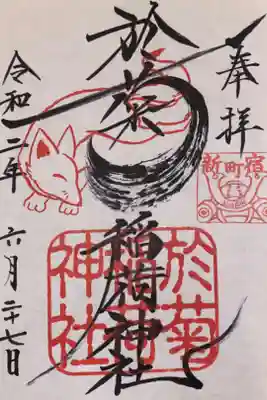 奉拝
新町宿
於菊稲荷神社
於菊
稲荷
神社
令和二年
六月二十七日